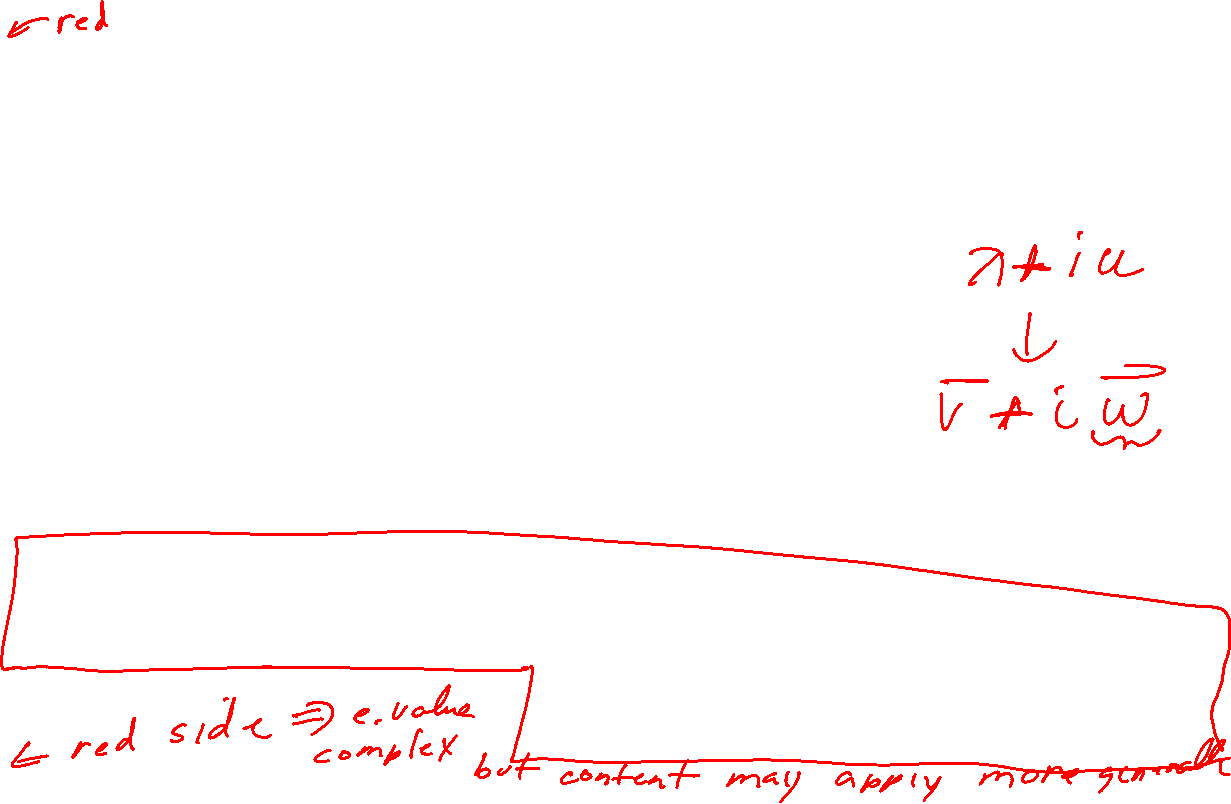 ← red
λ + iu
↓
v̄ + i w⃗
← red side ⇒ e.value
complex
but content may apply more generally